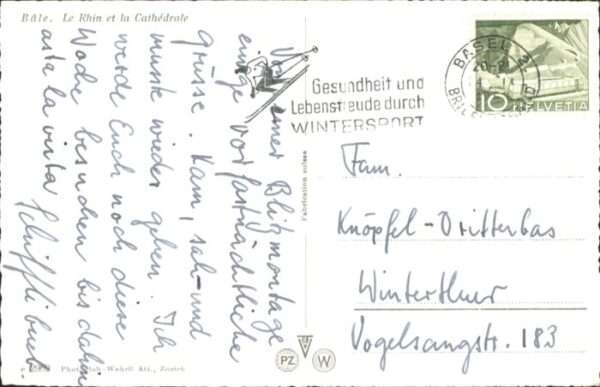 Bâle. Le Rhin et la Cathédrale
Von einer Blitzmontage
einige vorfastnächtliche
Grüsse. Kam, sah und
musste wieder gehen. Ich
werde Euch noch diese
Woche besuchen bis dahin
asta la vista
Schifflibueb
Gesundheit und
Lebensfreude durch
WINTERSPORT
BASEL 2
10 HELVETIA
Fabrication suisse
Fam.
Knöpfel-Dritterbas
Winterthur
Vogelsangstr. 183
PZ W
Wehrli AG., Zürich